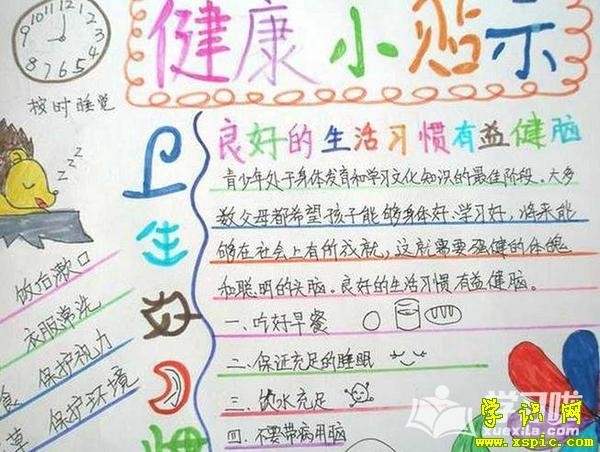 健康小贴示
10 11 12 1 2 3 4 5 6 7 8 9
按时睡觉
卫生好习惯
良好的生活习惯有益健脑
青少年处于身体发育和学习文化知识的最佳阶段。大多
数父母都希望孩子能够身体好、学习好,将来能
够在社会上有所成就,这就需要强健的体魄
和聪明的头脑。良好的生活习惯有益健脑。
一、吃好早餐
二、保证充足的睡眠
三、饮水充足
四、不要带病用脑
饭后漱口
衣服常洗
保护视力
保护环境
食
草
zzz
学习啦
xuexila.com
学识网
www.xspic.com